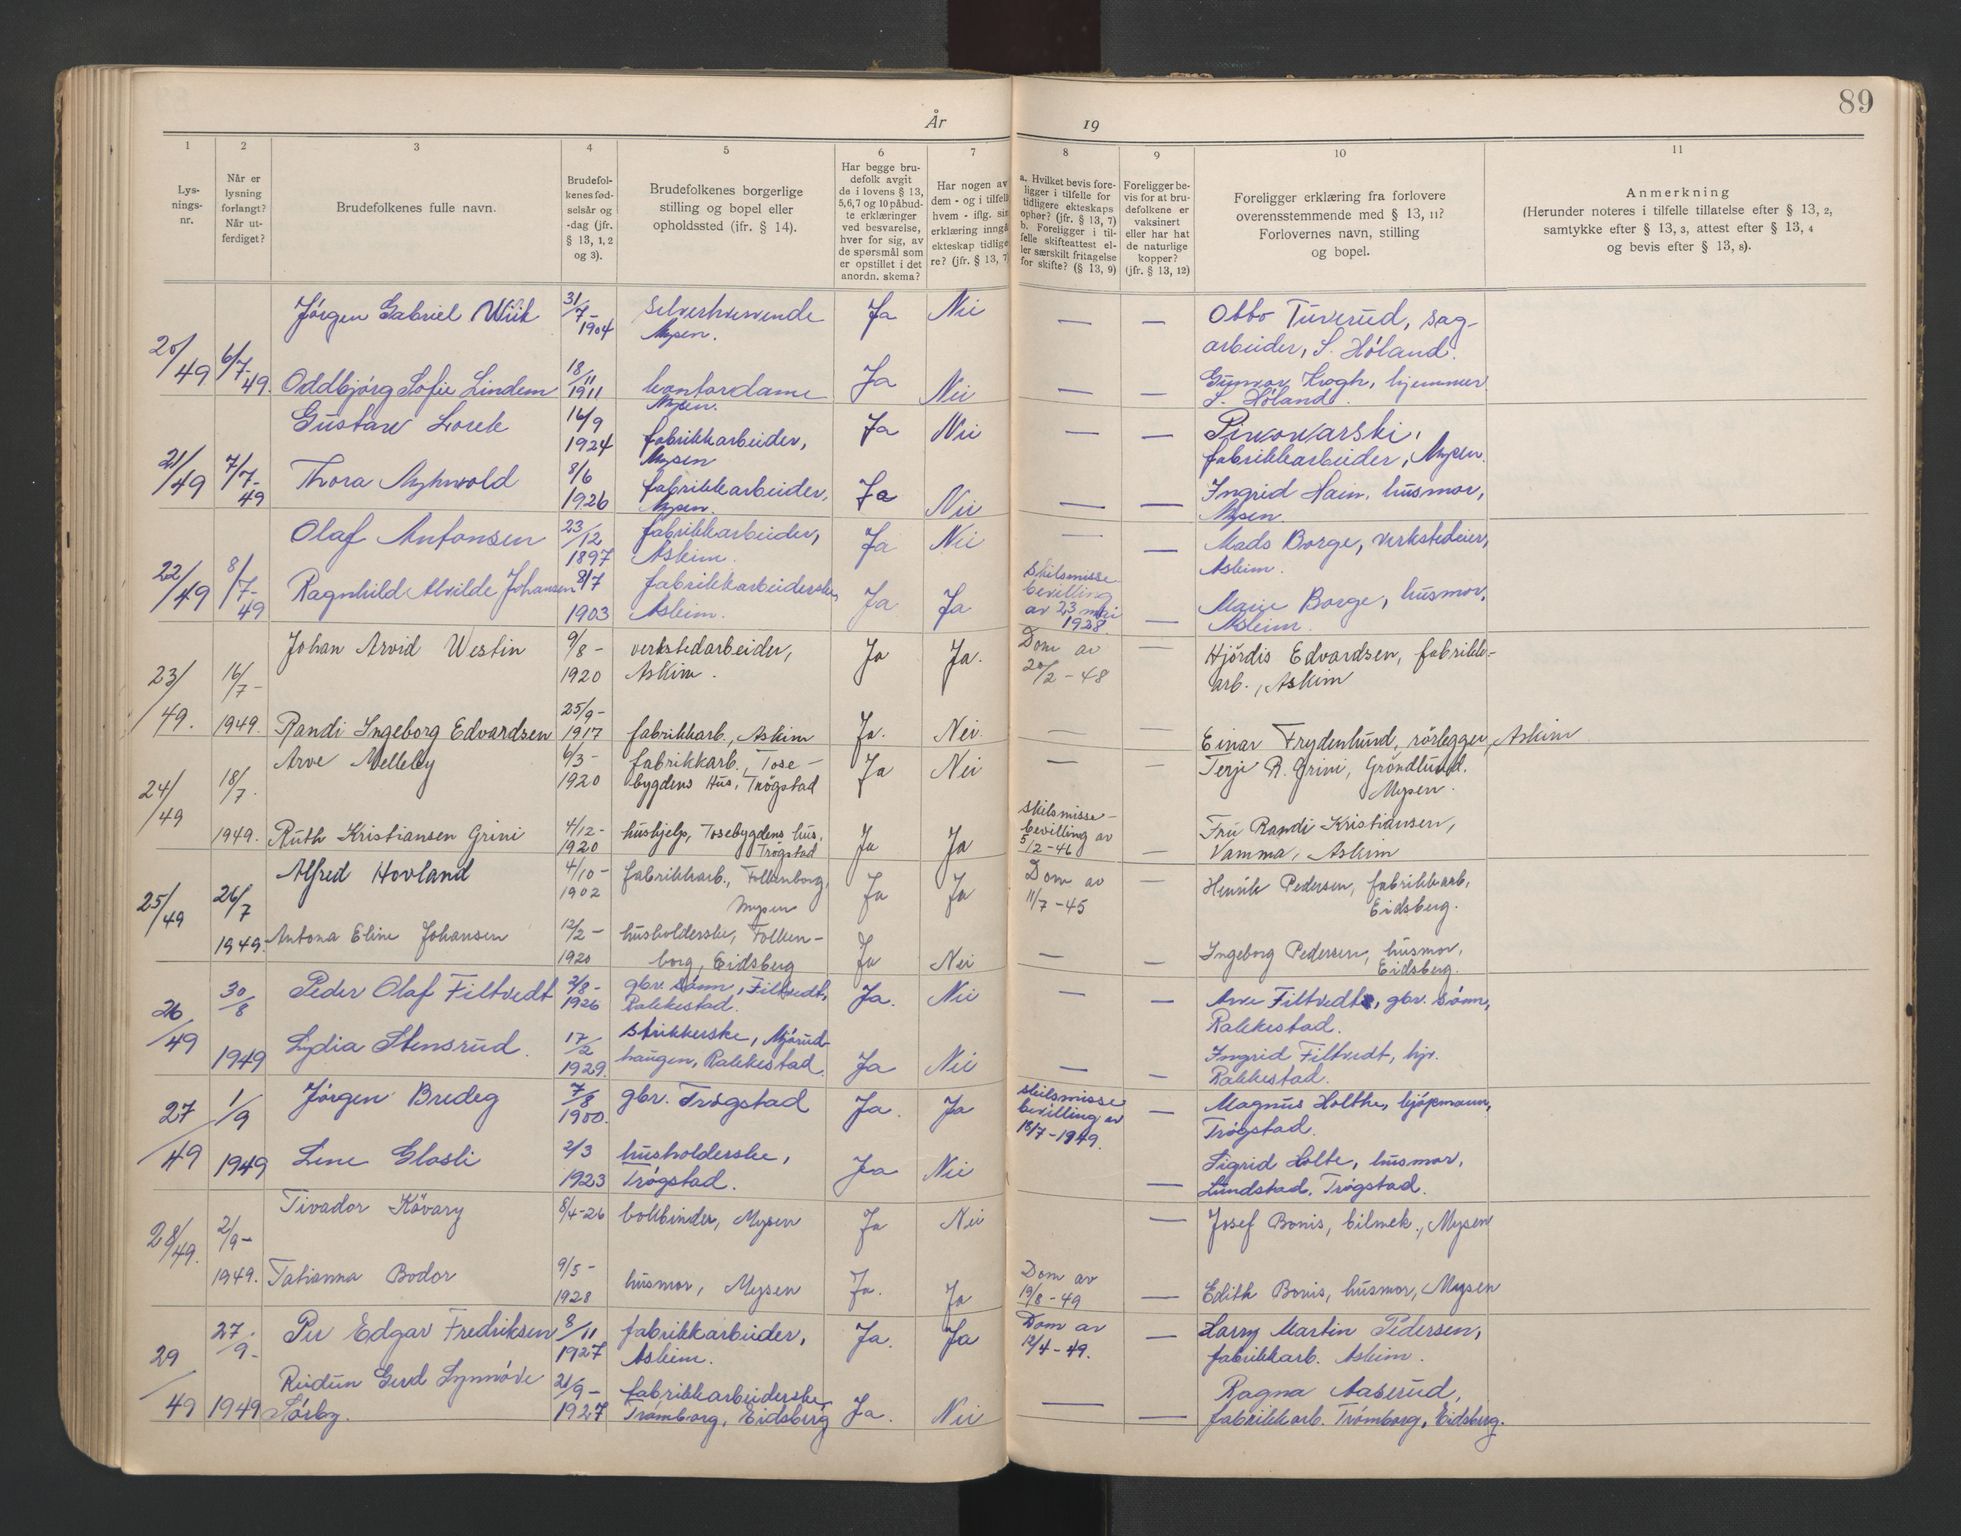 89
År 19
1 2 3 4 5 6 7 8 9 10 11
Lys-
nings-
nr.
Når er
lysning
forlangt?
Når ut-
ferdiget?
Brudefolkenes fulle navn.
Brudefol-
kenes fød-
selsår og
-dag (jfr.
§ 13, 1, 2
og 3).
Brudefolkenes borgerlige
stilling og bopel eller
opholdssted (jfr. § 14).
Har begge bru-
defolk avgit
de i lovens § 13,
5,6,7 og 10 påbud-
te erklæringer
ved besvarelse,
hver for sig, av
de spørsmål som
er opstillet i det
anordn. skema?
Har nogen av
dem - og i tilfelle
hvem - iflg. sin
erklæring inngå
ekteskap tidlige-
re? (jfr. § 13, 7)
a. Hvilket bevis fore-
ligger i tilfelle for
tidligere ekteskaps
ophør? (jfr. § 13, 7)
b. Foreligger i til-
felle skifteattest el-
ler særskilt fritagelse
for skifte? (§ 13, 9)
Foreligger be-
vis for at bru-
defolkene er
vaksinert
eller har hat
de naturlige
kopper?
(jfr. § 13, 12)
Foreligger erklæring fra forlovere
overensstemmende med § 13, 11?
Forlovernes navn, stilling
og bopel.
Anmerkning
(Herunder noteres i tilfelle tillatelse efter § 13, 2,
samtykke efter § 13, 3, attest efter § 13, 4
og bevis efter § 13, 8).
20/49 6/7-49.
Jørgen Gabriel Wiik 31/7-1904 selverhvervende Mysen. Ja Nei — — Otto Tuverud, sag-
arbeider, S. Høland.
Oddbjørg Sofie Lindem 18/11 1911 kontordame Mysen. Ja Nei — — Gunvor Krogh, hjemmev.
S. Høland.
21/49 7/7-49
Gustav Lorek 16/9 1924 fabrikkarbeider, Mysen Ja Nei — — Pivovarski,
fabrikkarbeider, Mysen.
Thora Myhrvold 8/6 1926 fabrikkarbeider, Mysen. Ja Nei — — Ingrid Hain, husmor,
Mysen.
22/49 8/7-49
Olaf Antonsen 23/12 1897 fabrikkarbeider, Askim. Ja Nei — — Mads Borge, verkstedeier,
Askim.
Ragnhild Alvilde Johansen 8/7 1903 fabrikkarbeiderske, Askim. Ja Ja skilsmisse
bevilling
av 23 mai
1928. — Marie Borge, husmor,
Askim.
23/49. 16/7-1949.
Johan Arvid Westin 9/8-1920 verkstedarbeider, Askim. Ja Ja. Dom av
20/2-48 — Hjördis Edvardsen, fabrikk-
arb., Askim
Randi Ingeborg Edvardsen 25/9-1917 fabrikkarb., Askim Ja. Nei. — — Einar Frydenlund, rörlegger, Askim
24/49 18/7. 1949.
Arve Melleby 6/3-1920 fabrikkarb., Tose-
bygdens Hus, Trögstad Ja Nei — — Terje R. Grini, Gröndlund.
Mysen.
Ruth Kristiansen Grini 4/12-1920 hushjelp, Tosebygdens hus,
Trögstad Ja Ja skilsmisse-
bevilling av
5/12-46 — Fru Randi Kristiansen,
Vamma, Askim
25/49 26/7 1949.
Alfred Hovland 4/10-1902 fabrikkarb., Folkenborg,
Mysen Ja Ja Dom av
11/7-45 — Henrik Pedersen, fabrikkarb,
Eidsberg.
Antona Eline Johansen 12/2-1920 husholderske, Folken-
borg, Eidsberg Ja Nei — — Ingeborg Pedersen, husmor,
Eidsberg.
26/49 30/8 1949
Peder Olaf Filtvedt 2/8-1926 gbr. sønn, Filtvedt,
Rakkestad. Ja. Nei — — Arve Filtvedt, gbr. sønn,
Rakkestad.
Lydia Stensrud. 17/2 1929. strikkerske, Mjørud-
haugen, Rakkestad. Ja Nei — — Ingrid Filtvedt, hjv.
Rakkestad.
27/49 1/9 1949
Jørgen Bredeg 7/8 1900. gbr. Trøgstad Ja. Ja skilsmisse
bevilling av
18/7-1949. — Magnus Holthe, kjøpmann,
Trøgstad.
Lene Glosli 2/3 1923 husholderske,
Trøgstad. Ja Nei — Sigrid Holte, husmor,
Lundstad, Trøgstad.
28/49. 2/9-1949.
Tivador Kövary 8/4-26 bokbinder, Mysen Ja Nei — Josef Bonis, bilmek., Mysen
Tatianna Bodor 9/5-1928 husmor, Mysen Ja. Ja Dom av
19/8-49 — Edith Bonis, husmor, Mysen
29/49 27/9- 1949
Per Edgar Fredriksen 8/11 1927 fabrikkarbeider,
Askim. Ja. Ja Dom av
12/4-49. — Harry Martin Pedersen,
fabrikkarb. Askim.
Reidun Gerd Synnøve
Sørby. 21/9-1927 fabrikkarbeiderske
Trømborg, Eidsberg Ja. Nei — — Ragna Aaserud,
fabrikkarb. Trømborg, Eidsberg.